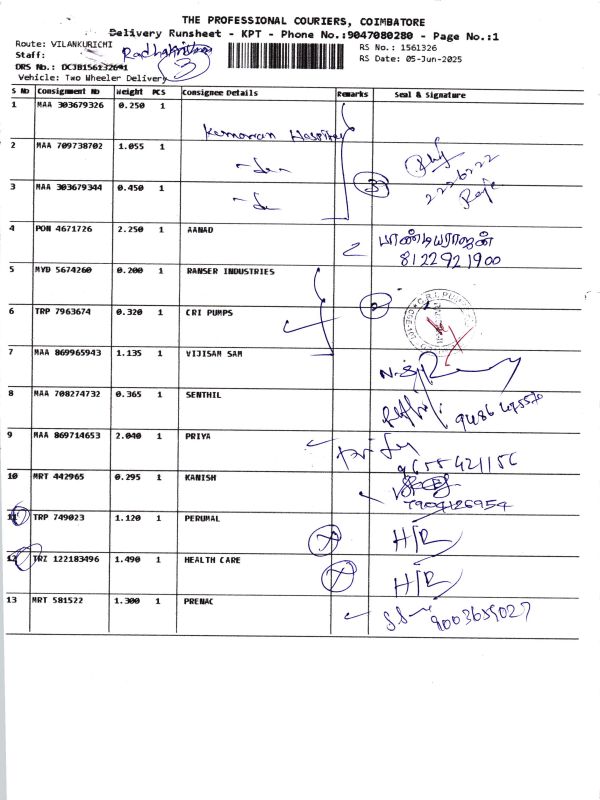 THE PROFESSIONAL COURIERS, COIMBATORE
Delivery Runsheet - KPT - Phone No.:9047080280 - Page No.:1
Route: VILANKURICHI
RS No.: 1561326
Staff:
3
RS Date: 05-Jun-2025
DRS No.:
Vehicle: Two Wheeler Delivery
S No Consignment No Weight PCS Consignee Details Remarks Seal & Signature
1 MAA 303679326 0.250 1
2 MAA 709738702 1.055 1
3 MAA 303679344 0.450 1 3
4 PON 4671726 2.250 1 AANAD பாண்டியராஜன்
8122921900
5 MYD 5674260 0.200 1 RANSER INDUSTRIES
6 TRP 7963674 0.320 1 CRI PUMPS 2
7 MAA 869965943 1.135 1 VIJISAM SAM
8 MAA 708274732 0.365 1 SENTHIL
9 MAA 869714653 2.040 1 PRIYA
9655421156
10 MRT 442965 0.295 1 KANISH
7904126954
11 TRP 749023 1.120 1 PERUMAL X H/R
12 TRZ 122183496 1.490 1 HEALTH CARE X H/R
13 MRT 581522 1.300 1 PRENAC 9003659027